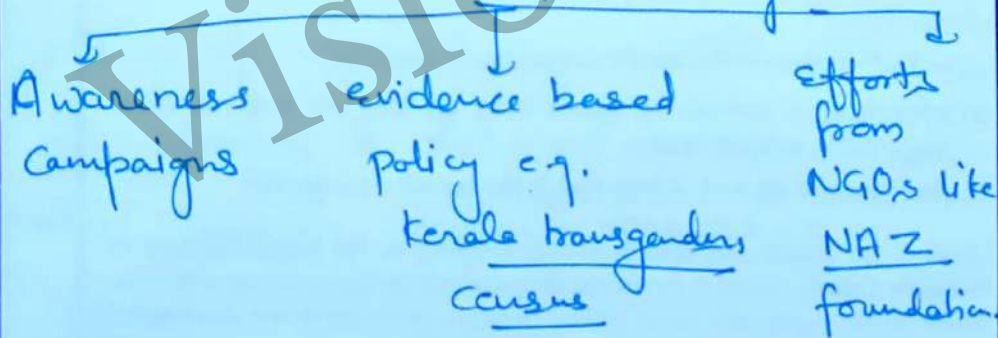 Awareness
Campaigns
evidence based
policy e.g.
Kerala transgenders
census
Efforts
from
NGOs like
NAZ
foundation.